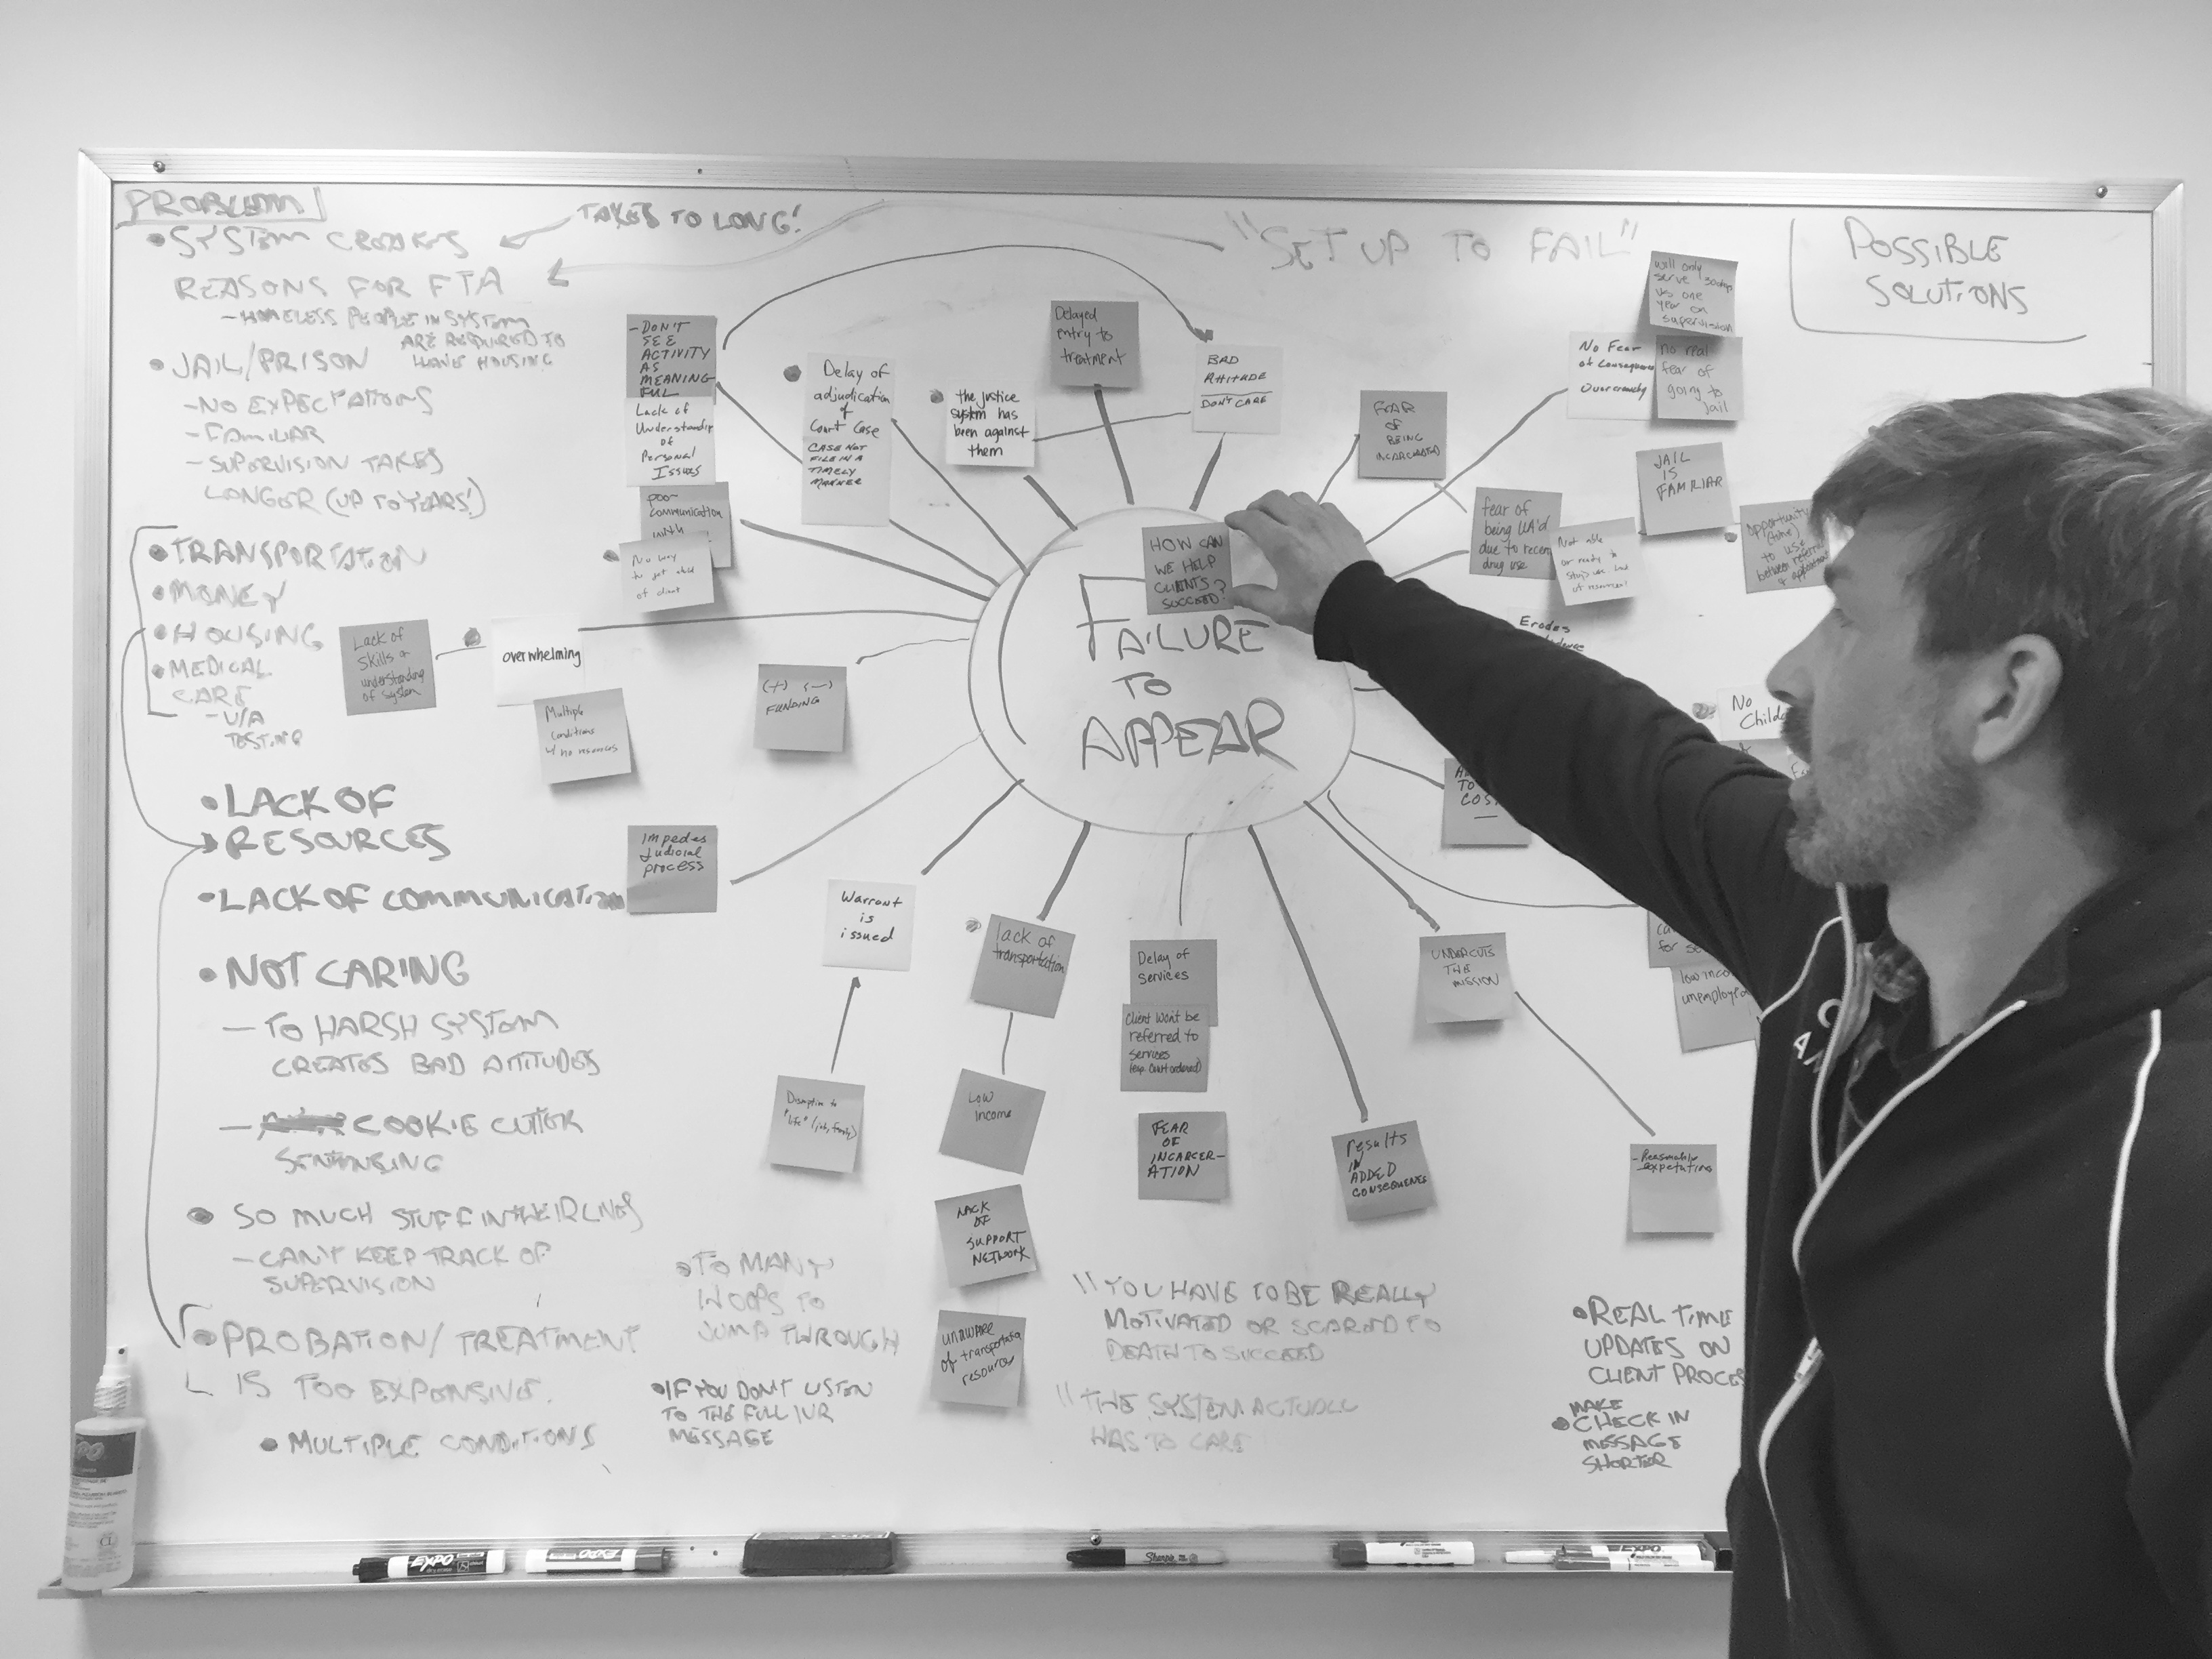 PROBLEM
• SYSTEM CREATES
REASONS FOR FTA
- HOMELESS PEOPLE IN SYSTEM
ARE REQUIRED TO
HAVE HOUSING
TAKES TO LONG!
• JAIL/PRISON
- NO EXPECTATIONS
- FAMILIAR
- SUPERVISION TAKES
LONGER (UP TO YEARS!)
• TRANSPORTATION
• MONEY
• HOUSING
• MEDICAL
CARE
- U/A
TESTING
• LACK OF
RESOURCES
• LACK OF COMMUNICATION
• NOT CARING
- TO HARSH SYSTEM
CREATES BAD ATTITUDES
- COOKIE CUTTER
SENTENSING
• SO MUCH STUFF IN THEIR LIVES
- CAN'T KEEP TRACK OF
SUPERVISION
• PROBATION/TREATMENT
IS TOO EXPENSIVE.
• MULTIPLE CONDITIONS
"SET UP TO FAIL"
POSSIBLE
SOLUTIONS
- DON'T
SEE
ACTIVITY
AS
MEANING-
FUL
Lack of
Understanding
of
Personal
Issues
poor
communication
with
No way
to get ahold
of client
Delay of
adjudication
of
Court Case
CASE NOT
FILE IN A
TIMELY
MANNER
the justice
system has
been against
them
Delayed
entry to
treatment
BAD
ATTITUDE
DON'T CARE
FEAR
OF
BEING
INCARCERATED
No Fear
of Consequence
Overcrowdy
will only
serve
vs one
year on
supervision
no real
fear of
going to
Jail
JAIL
IS
FAMILIAR
fear of
being UA'd
due to recent
drug use
Not able
or ready to
of resources!
Opportunity
(time)
to use
between referral
Erodes
No
Childc
TO
COST
Lack of
skills or
understanding
of system
overwhelming
Multiple
conditions
w/ no resources
(+) (-)
FUNDING
HOW CAN
WE HELP
CLIENTS
SUCCEED?
FAILURE
TO
APPEAR
Impedes
Judicial
process
Warrant
is
issued
Disruption to
"life" (job, family)
lack of
transportation
Low
income
LACK
OF
SUPPORT
NETWORK
unaware
of transportation
resources
Delay of
services
Client won't be
referred to
services
FEAR
OF
INCARCER-
ATION
results
IN
ADDED
CONSEQUENCES
UNDERCUTS
THE
MISSION
- Reasonable
expetations
low inco
unemploye
• TO MANY
HOOPS TO
JUMP THROUGH
• IF YOU DON'T LISTEN
TO THE FULL IVR
MESSAGE
"YOU HAVE TO BE REALLY
MOTIVATED OR SCARED TO
DEATH TO SUCCEED
"THE SYSTEM ACTUALLY
HAS TO CARE
• REAL TIME
UPDATES ON
CLIENT PROCES
MAKE
• CHECK IN
MESSAGE
SHORTER
EXPO
EXPO
Sharpie
EXPO